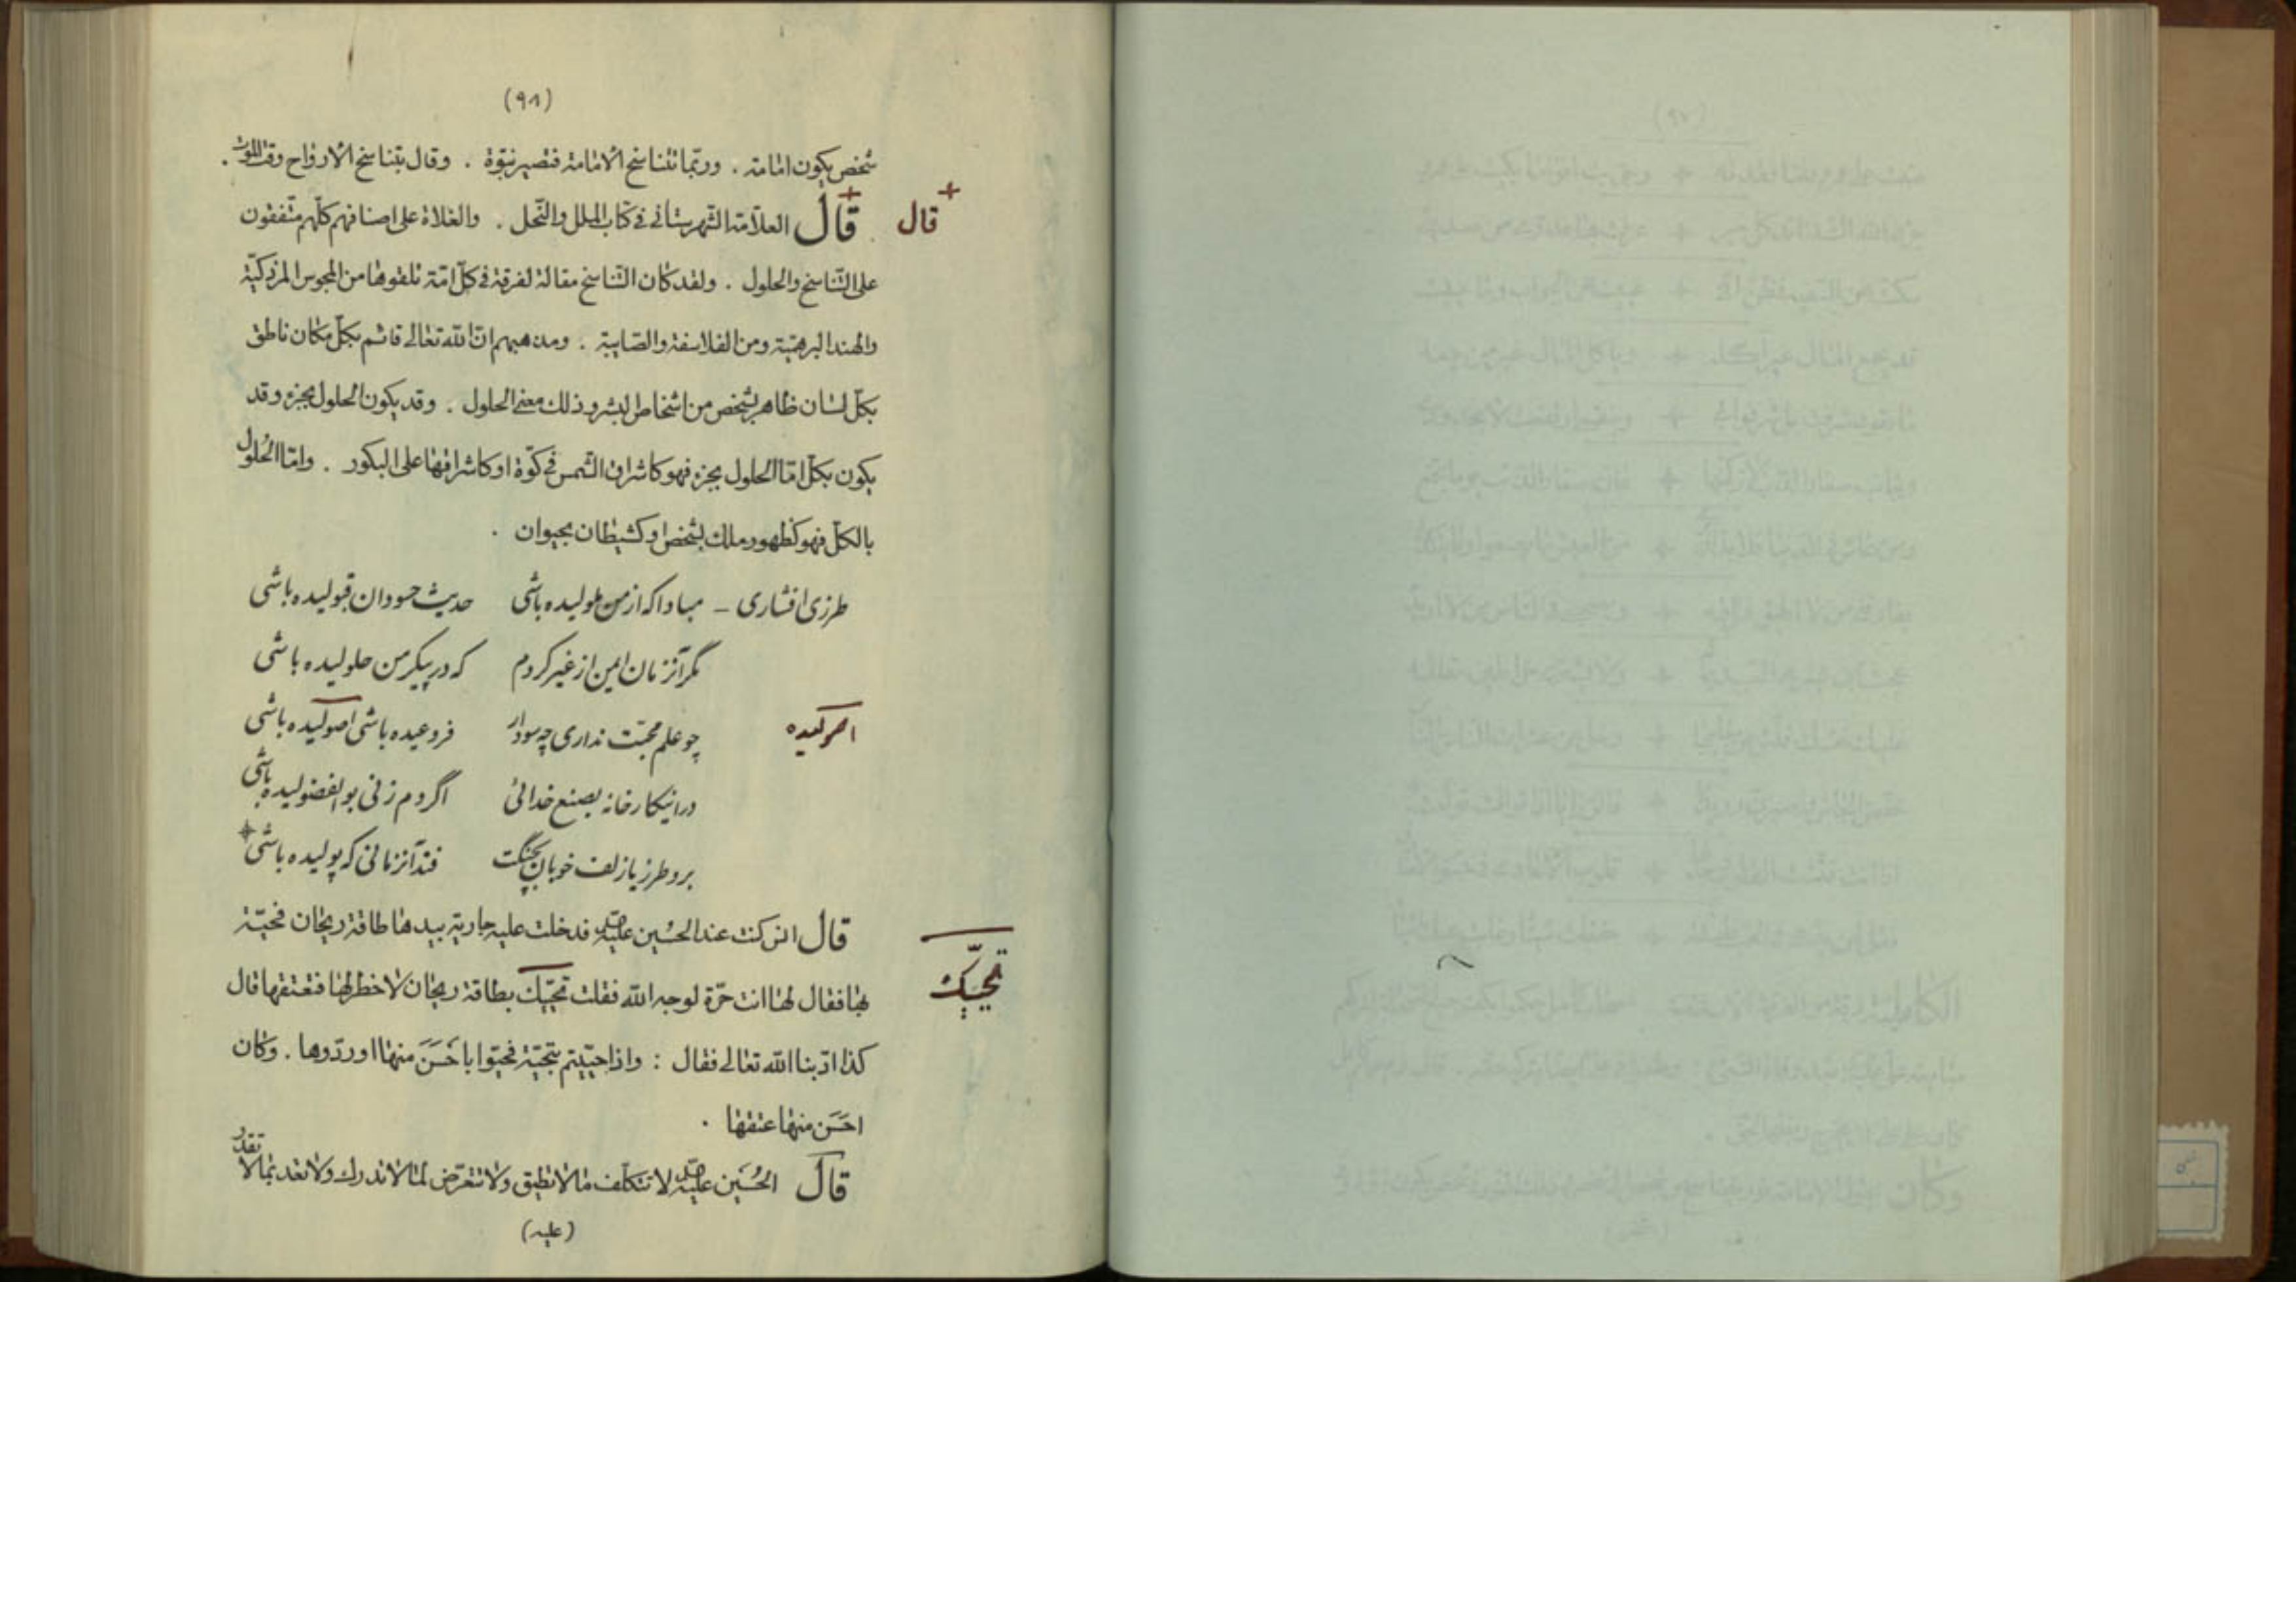 (٩٨)
شخص یکون امامة . وربّما تتناسخ الامامة فتصیر نبوّة . وقال بتناسخ الارواح وقت الموت .
قال العلاّمة الشهرستانی فی کتاب الملل والنّحل . والغلاة علی اصنافهم کلّهم متّفقون
قال
علی التّناسخ والحلول . ولقد کان التّناسخ مقالة لفرقة فی کلّ امّة تلقوها من المجوس المزدکیّة
والهند البرهمیّة ومن الفلاسفة والصّابیة . ومذهبهم انّ الله تعالی قائم بکلّ مکان ناطق
بکلّ لسان ظاهر بشخص من اشخاص البشر وذلک معنی الحلول . وقد یکون الحلول بجزء وقد
یکون بکلّ امّا الحلول بجزء فهو کاشراق الشّمس فی کوّة او کاشراقها علی البکور . وامّا الحلول
بالکلّ فهو کظهور ملک بشخص او کشیطان بحیوان .
طرزی افشاری – مبادا که از من ملولیده باشی حدیث حسودان قبولیده باشی
مگر آنزمان ایمن از غیر کردم که در پیکر من حلولیده باشی
چو علم محبّت نداری چه سود ار فروعیده باشی اصولیده باشی
اصولیده
در اینکارخانه بصنع خدائی اگر دم زنی بوالفضولیده باشی
برو طرزیا زلف خوبان بچنگت فتد آنزمانی که پولیده باشی
قال انس کنت عند الحسین علیه فدخلت علیه جاریة بیدها طاقة ریحان فحیّته
بها فقال لها انت حرّة لوجه الله فقلت تحیّیک بطاقة ریحان لا خطر لها فتعتقها قال
تحیّیک
کذا ادّبنا الله تعالی فقال : واذا حیّیتم بتحیّة فحیّوا باحسَنَ منها او ردّوها . وکان
احسَن منها عتقها .
قال الحُسَین علیه لا تتکلّف ما لا تطیق ولا تتعرّض لما لا تدرك ولا تعد بما لا تقدر
(علیه)